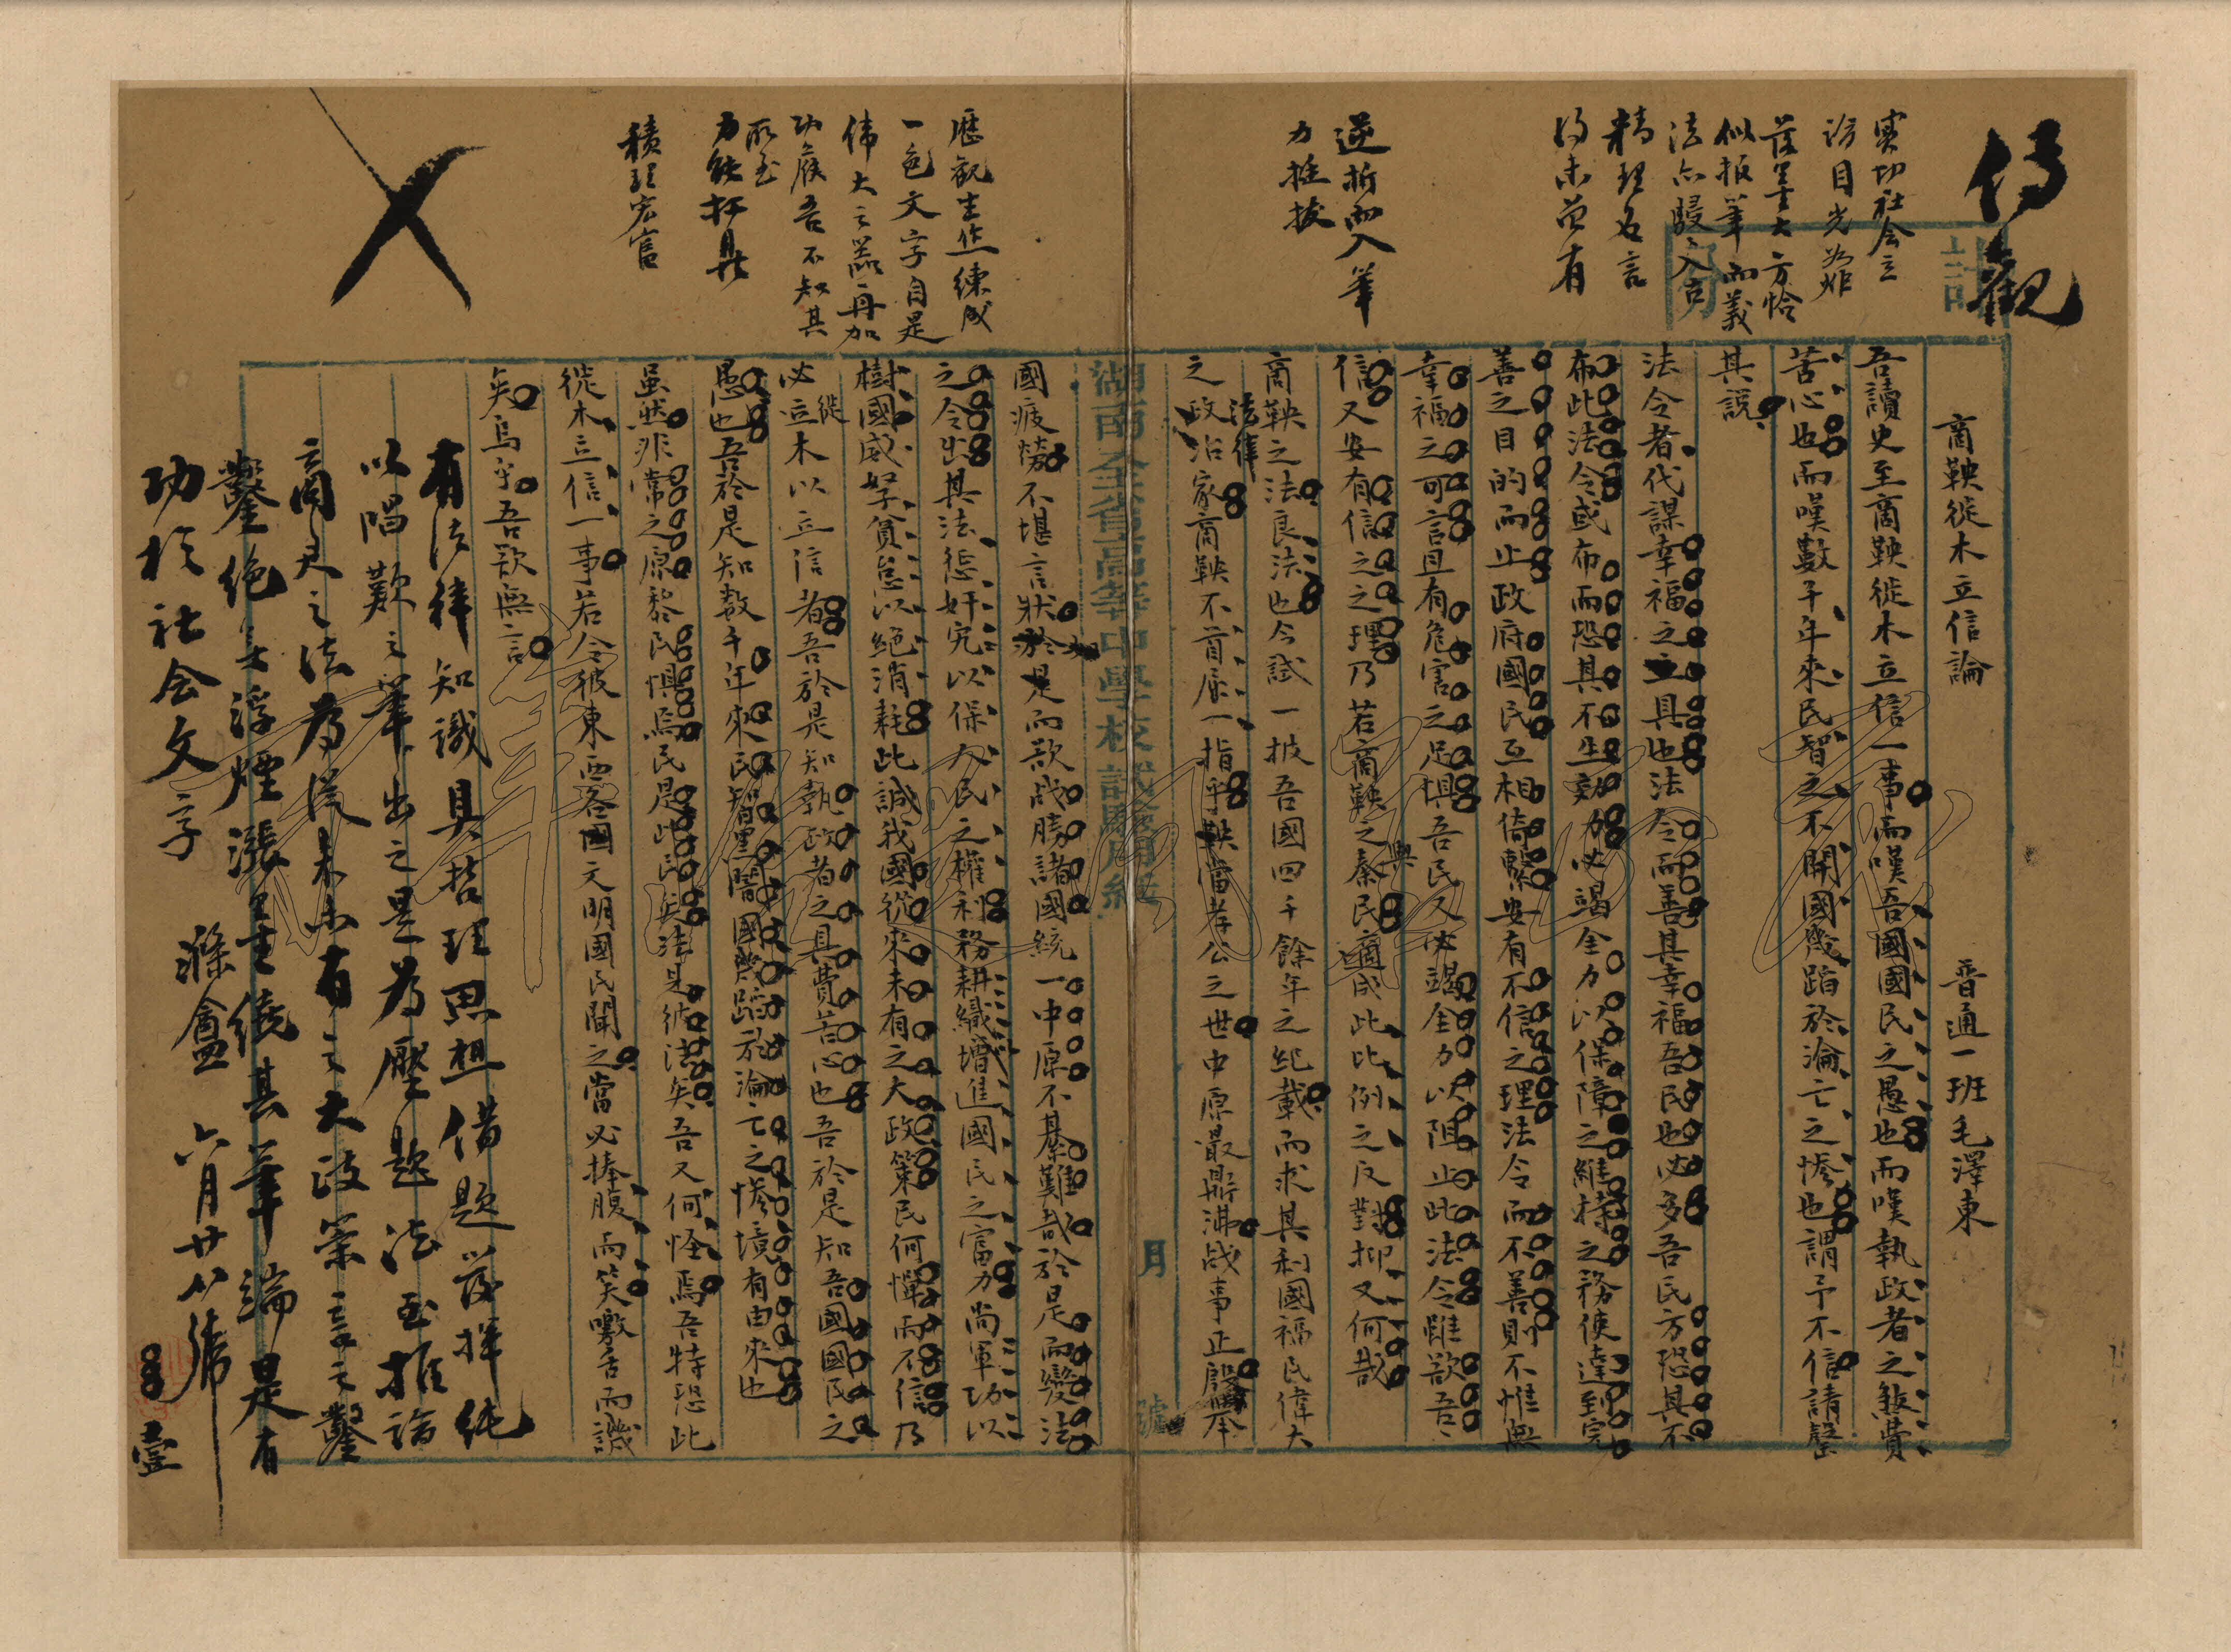 傳觀
實切社會立
論目光如炬
落墨大方恰
似報筆而義
法亦駸入古
精理名言
得未曾有
逆折而入筆
力挺拔
歷觀生作練成
一色文字自是
偉大之器再加
功候吾不知其
所至
力能扛鼎
積理宏富
商鞅徙木立信論 普通一班毛澤東
吾讀史至商鞅徙木立信一事而嘆吾國國民之愚也而嘆執政者之煞費
苦心也而嘆數千年來民智之不開國幾蹈於淪亡之慘也謂予不信請罄
其說
法令者代謀幸福之具也法令而善其幸福吾民也必多吾民方恐其不
布此法令或布而恐其不生効力必竭全力以保障之維持之務使達到完
善之目的而止政府國民互相倚繫安有不信之理法令而不善則不惟無
幸福之可言且有危害之足懼吾民又必竭全力以阻止此法令雖欲吾
信又安有信之之理乃若商鞅之與秦民適成此比例之反對抑又何哉
商鞅之法良法也今試一披吾國四千餘年之紀載而求其利國福民偉大
法律
之政治家商鞅不首屈一指乎鞅當孝公之世中原最鼎沸战事正殷舉
月 號
湖南全省高等中學校試驗用紙
國疲勞不堪言狀於是而欲战勝諸國統一中原不綦難哉於是而變法
之令出其法懲奸宄以保人民之權利務耕織增進國民之富力尚軍功以
樹國威孥貧怠以絕消耗此誠我國從來未有之大政策民何憚而不信乃
必徙木以立信者吾於是知執政者之具費苦心也吾於是知吾國國民之
愚也吾於是知數千年來民智黑闇國幾蹈於淪亡之慘境有由來也
雖然非常之原黎民懼焉民是此民矣法是彼法矣吾又何怪焉吾特恐此
徙木立信一事若令彼東西各國文明國民聞之當必捧腹而笑噭舌而譏
矣烏乎吾欲無言
有法律知識具哲理思想借題發揮純
以唱歎之筆出之是為壓題法至推論
商君之法為從來未有之大政策言之鑿
鑿絕無浮煙漲墨繞其筆端是有
功於社會文字
滌盦 六月廿八號